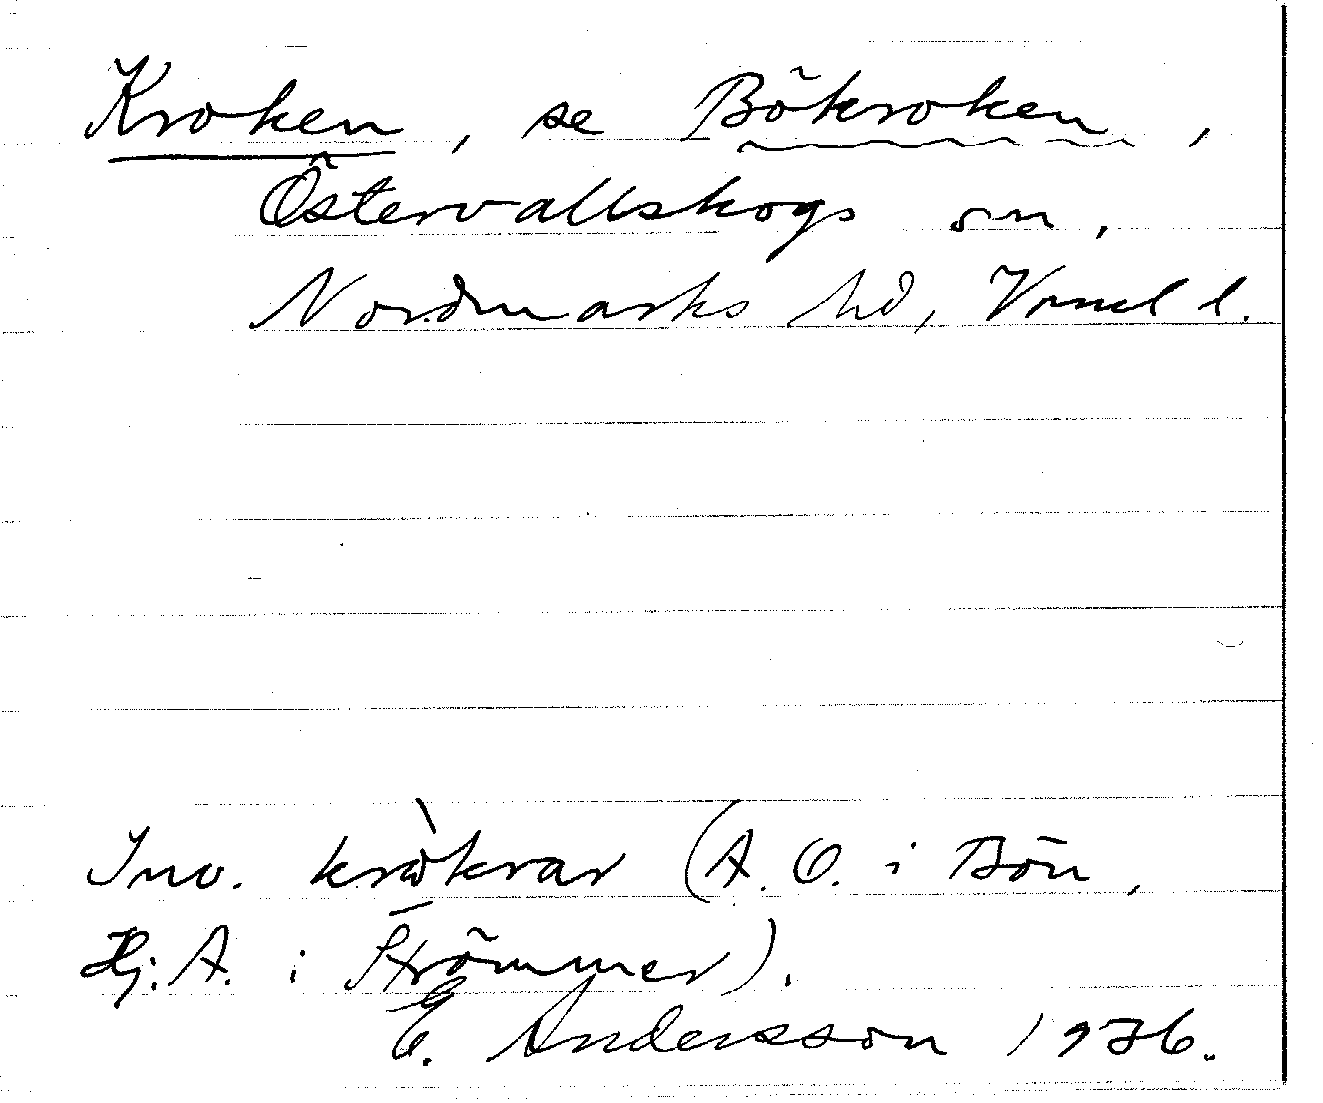 Kroken, se Bökroken,
Östervallskogs sn,
Nordmarks hd, Vrml l.
Inv. kròkrar (A. O. i Bön,
Hj. A. i Strömmer).
E. Andersson 1936.